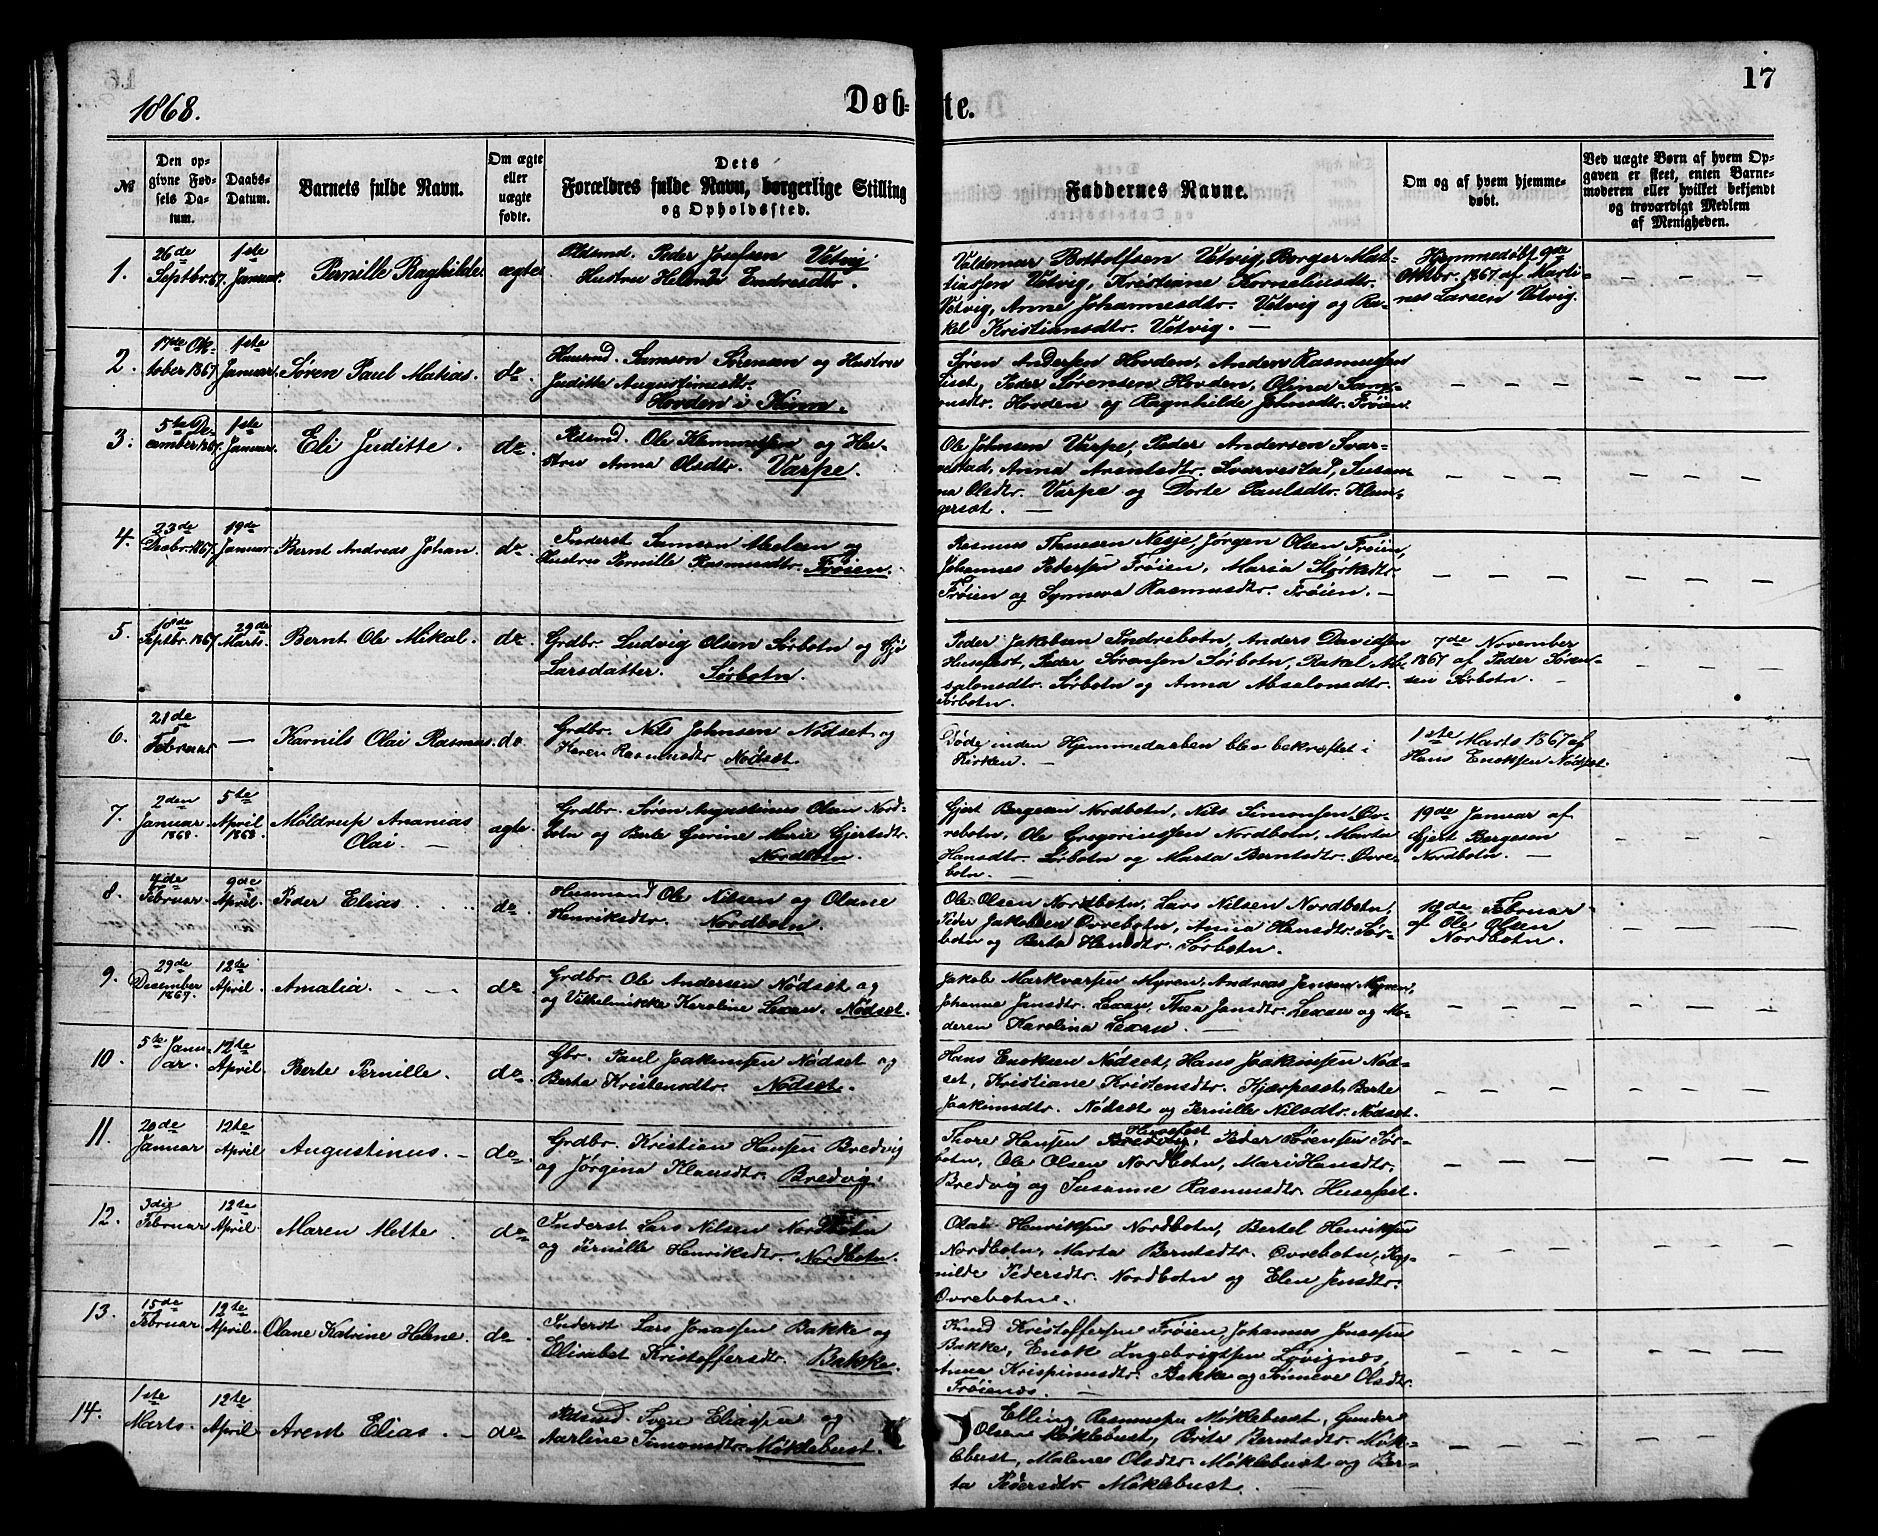 1868.
Døb-
te.
17
№
Den op-
givne Fød-
sels Da-
tum.
Daabs-
Datum.
Barnets fulde Navn.
Om ægte
eller
uægte
fødte.
Dets
Forældres fulde Navn, borgerlige Stilling
og Opholdssted.
Faddernes Navne.
Om og af hvem hjemme-
døbt.
Ved uægte Børn af hvem Op-
gaven er skeet, enten Barne-
moderen eller hvilket bekjendt
og troværdigt Medlem
af Menigheden.
1.
26de
Septbr. 67.
1ste
Januar.
Pernille Raghilde
ægte
Pldsmd. Peder Josefsen Vetvig
Hustru Helene Endresdtr.
Valdemar Bottolfsen Vetvig, Borger Mat-
tiassen Vetvig, Kristiane Korneliusdtr.
Vetvig, Anne Johannesdtr. Vetvig og Ra-
kel Kristiansdtr. Vetvig. —
Hjemmedøbt 9de
Oktbr. 1867 af Marti-
nus Larsen Vetvig.
2.
17de Ok-
tober 1867
1ste
Januar.
Søren Paul Matias.
do.
Huusmd. Samson Sørensen og Hustru
Juditte Augustinusdtr.
Hovden i Kinn.
Søren Andersen Hovden, Anders Rasmussen
Liset, Peder Sørensen Hovden, Olina Sams-
onsdtr. Hovden og Ragnhilde Johnsdtr. Frøien.
3.
5te De-
cember 1867.
1ste
Januar.
Eli Juditte.
do.
Pldsmd. Ole Klemmetsen og Hu-
stru Anna Olsdtr. Varpe.
Ole Johnsen Varpe, Peder Andersen Svar-
vestad, Anna Arentsdtr. Svarvestad, Susan-
na Olsdtr. Varpe og Dorte Paulsdtr. Klun-
gersæt. —
4.
23de
Decbr. 1867.
19de
Januar.
Bernt Andreas Johan.
do.
Inderst Samson Nielsen og
Hustru Pernille Rasmusdtr. Frøien.
Rasmus Thuesen Nesje, Jørgen Olsen Frøien,
Johannes Pedersen Frøien, Maria Størkedtr.
Frøien og Synneva Rasmusdtr. Frøien. —
5.
18de
Septbr. 1867
29de
Marts.
Bernt Ole Mikal.
do.
Grdbr. Ludvig Olsen Sørbotn og
Larsdatter. Sørbotn.
Peder Jakobsen Indrebotn, Anders Davidsen
Husefest, Peder Sørensen Sørbotn, Rakel Ab-
salonsdtr. Sørbotn og Anna Absalonsdtr.
Sørbotn.
7de November
1867 af Peder Søren-
sen Sørbotn. —
6.
21de
Februar
—
Karnils Olai Rasmus.
do
Grdbr. Nils Johnsen Nødset og
Maren Rasmusdtr Nødset.
Døde inden Hjemmedaaben blev bekræftet i
Kirken. —
1ste Marts 1867 af
Hans Enoksen Nødset.
7.
2den
Januar
1868
5te
April
1868
Møldrup Ananias
Olai. —
ægte.
Grdbr. Søren Augustinus Olsen Nord-
botn og Berte Gurine Marie Gjertsdtr.
Nordbotn.
Gjert Bergesen Nordbotn, Nils Simonsen Øv-
rebotn, Ole Gregoriussen Nordbotn, Marta
Hansdtr. Sørbotn og Marta Berntsdtr. Øvre-
botn. —
19de Januar af
Gjert Bergesen
Nordbotn. —
8.
4de
Februar.
9de
April.
Peder Elias.
do.
Husmand Ole Nilsen og Olane
Henriksdtr. Nordbotn.
Ole Olsen Nordbotn, Lars Nilsen Nordbotn,
Peder Jakobsen Øvrebotn, Anna Hansdtr. Sør-
botn og Berta Hansdtr. Sørbotn.
18de Februar
af Ole Olsen
Nordbotn.
9.
29de
December
1867.
12te
April.
Amalia.
do.
Grdbr. Ole Andersen Nødset og
og Vilhelmikke Karoline Lexau. Nødset.
Jakob Markvarsen Myren, Andreas Jensen Myren,
Johanne Jensdtr. Lexau, Thea Jensdtr. Lexau og Mo-
deren Karolina Lexau. —
10.
5te Janu-
ar.
12te
April
Berte Pernille.
do.
Gbr. Paul Joakimsen Nødset og
Berta Kristensdtr. Nødset.
Hans Enoksen Nødset, Hans Joakimsen Nød-
set, Kristiane Kristensdtr. Kjærpeset, Berte
Joakimsdtr. Nødset og Pernille Nilsdtr. Nødset.
11.
20de
Januar
12te
April
Augustinus. —
do.
Grdbr. Kristian Hansen Bredvig
og Jørgina Klausdtr. Bredvig.
Husefest
Thore Hansen Bredvig, Peder Sørensen Sør-
botn, Ole Olsen Nordbotn, Mari Hansdtr.
Bredvig og Susanne Rasmusdtr. Husefest.
12.
3die
Februar
12te
April
Maren Mette.
do.
Inderst Lars Nilsen Nordbotn
og Pernille Henriksdtr. Nordbotn.
Olai Henriksen Nordbotn, Bertel Henriksen
Nordbotn, Marta Berntsdtr. Øvrebotn, Rag-
nilde Pedersdtr. Nordbotn og Elen Jensdtr.
Øvrebotn.
13.
15de
Februar
12te
April.
Olane Katrine Helene.
do.
Inderst Lars Jonassen Bakke og
Elisabet Kristoffersdtr. Bakke.
Knud Kristoffersen Frøien, Johannes Jonassen
Bakke, Enok Ingebrigtsen Løvignæs,
Anne Krispinusdtr. Bakke og Sønneve Olsdtr.
Frøienæs. —
14.
1ste
Marts.
12te
April
Arent Elias. —
do.
Pldsmd. Sven Eliassen og
Karline Simonsdtr. Møklebust.
Elling Rasmussen Møklebust, Gunder
Olsen Møklebust, Brite Berntsdtr. Møk-
lebust, Malene Olsdtr. Møklebust og Ber-
ta Pedersdtr Møklebust.